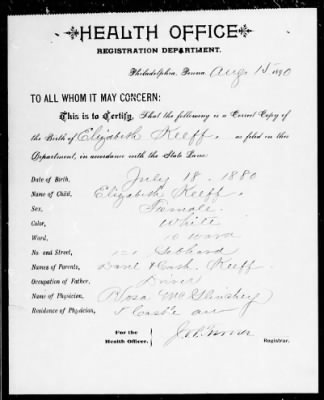 HEALTH OFFICE
REGISTRATION DEPARTMENT.
Philadelphia, Penna. Aug 15 1890
TO ALL WHOM IT MAY CONCERN:
This is to Certify, That the following is a Correct Copy of
the Birth of Elizabeth Keeff. as filed in this
Department, in accordance with the State Law:
Date of Birth, July 18. 1880
Name of Child, Elizabeth Keeff.
Sex, Female.
Color, White
Ward, 10 Ward
No. and Street,
Names of Parents, Keeff.
Occupation of Father, Driver
Name of Physician, Rosa
Residence of Physician, Castle av
For the
Health Officer. Registrar.